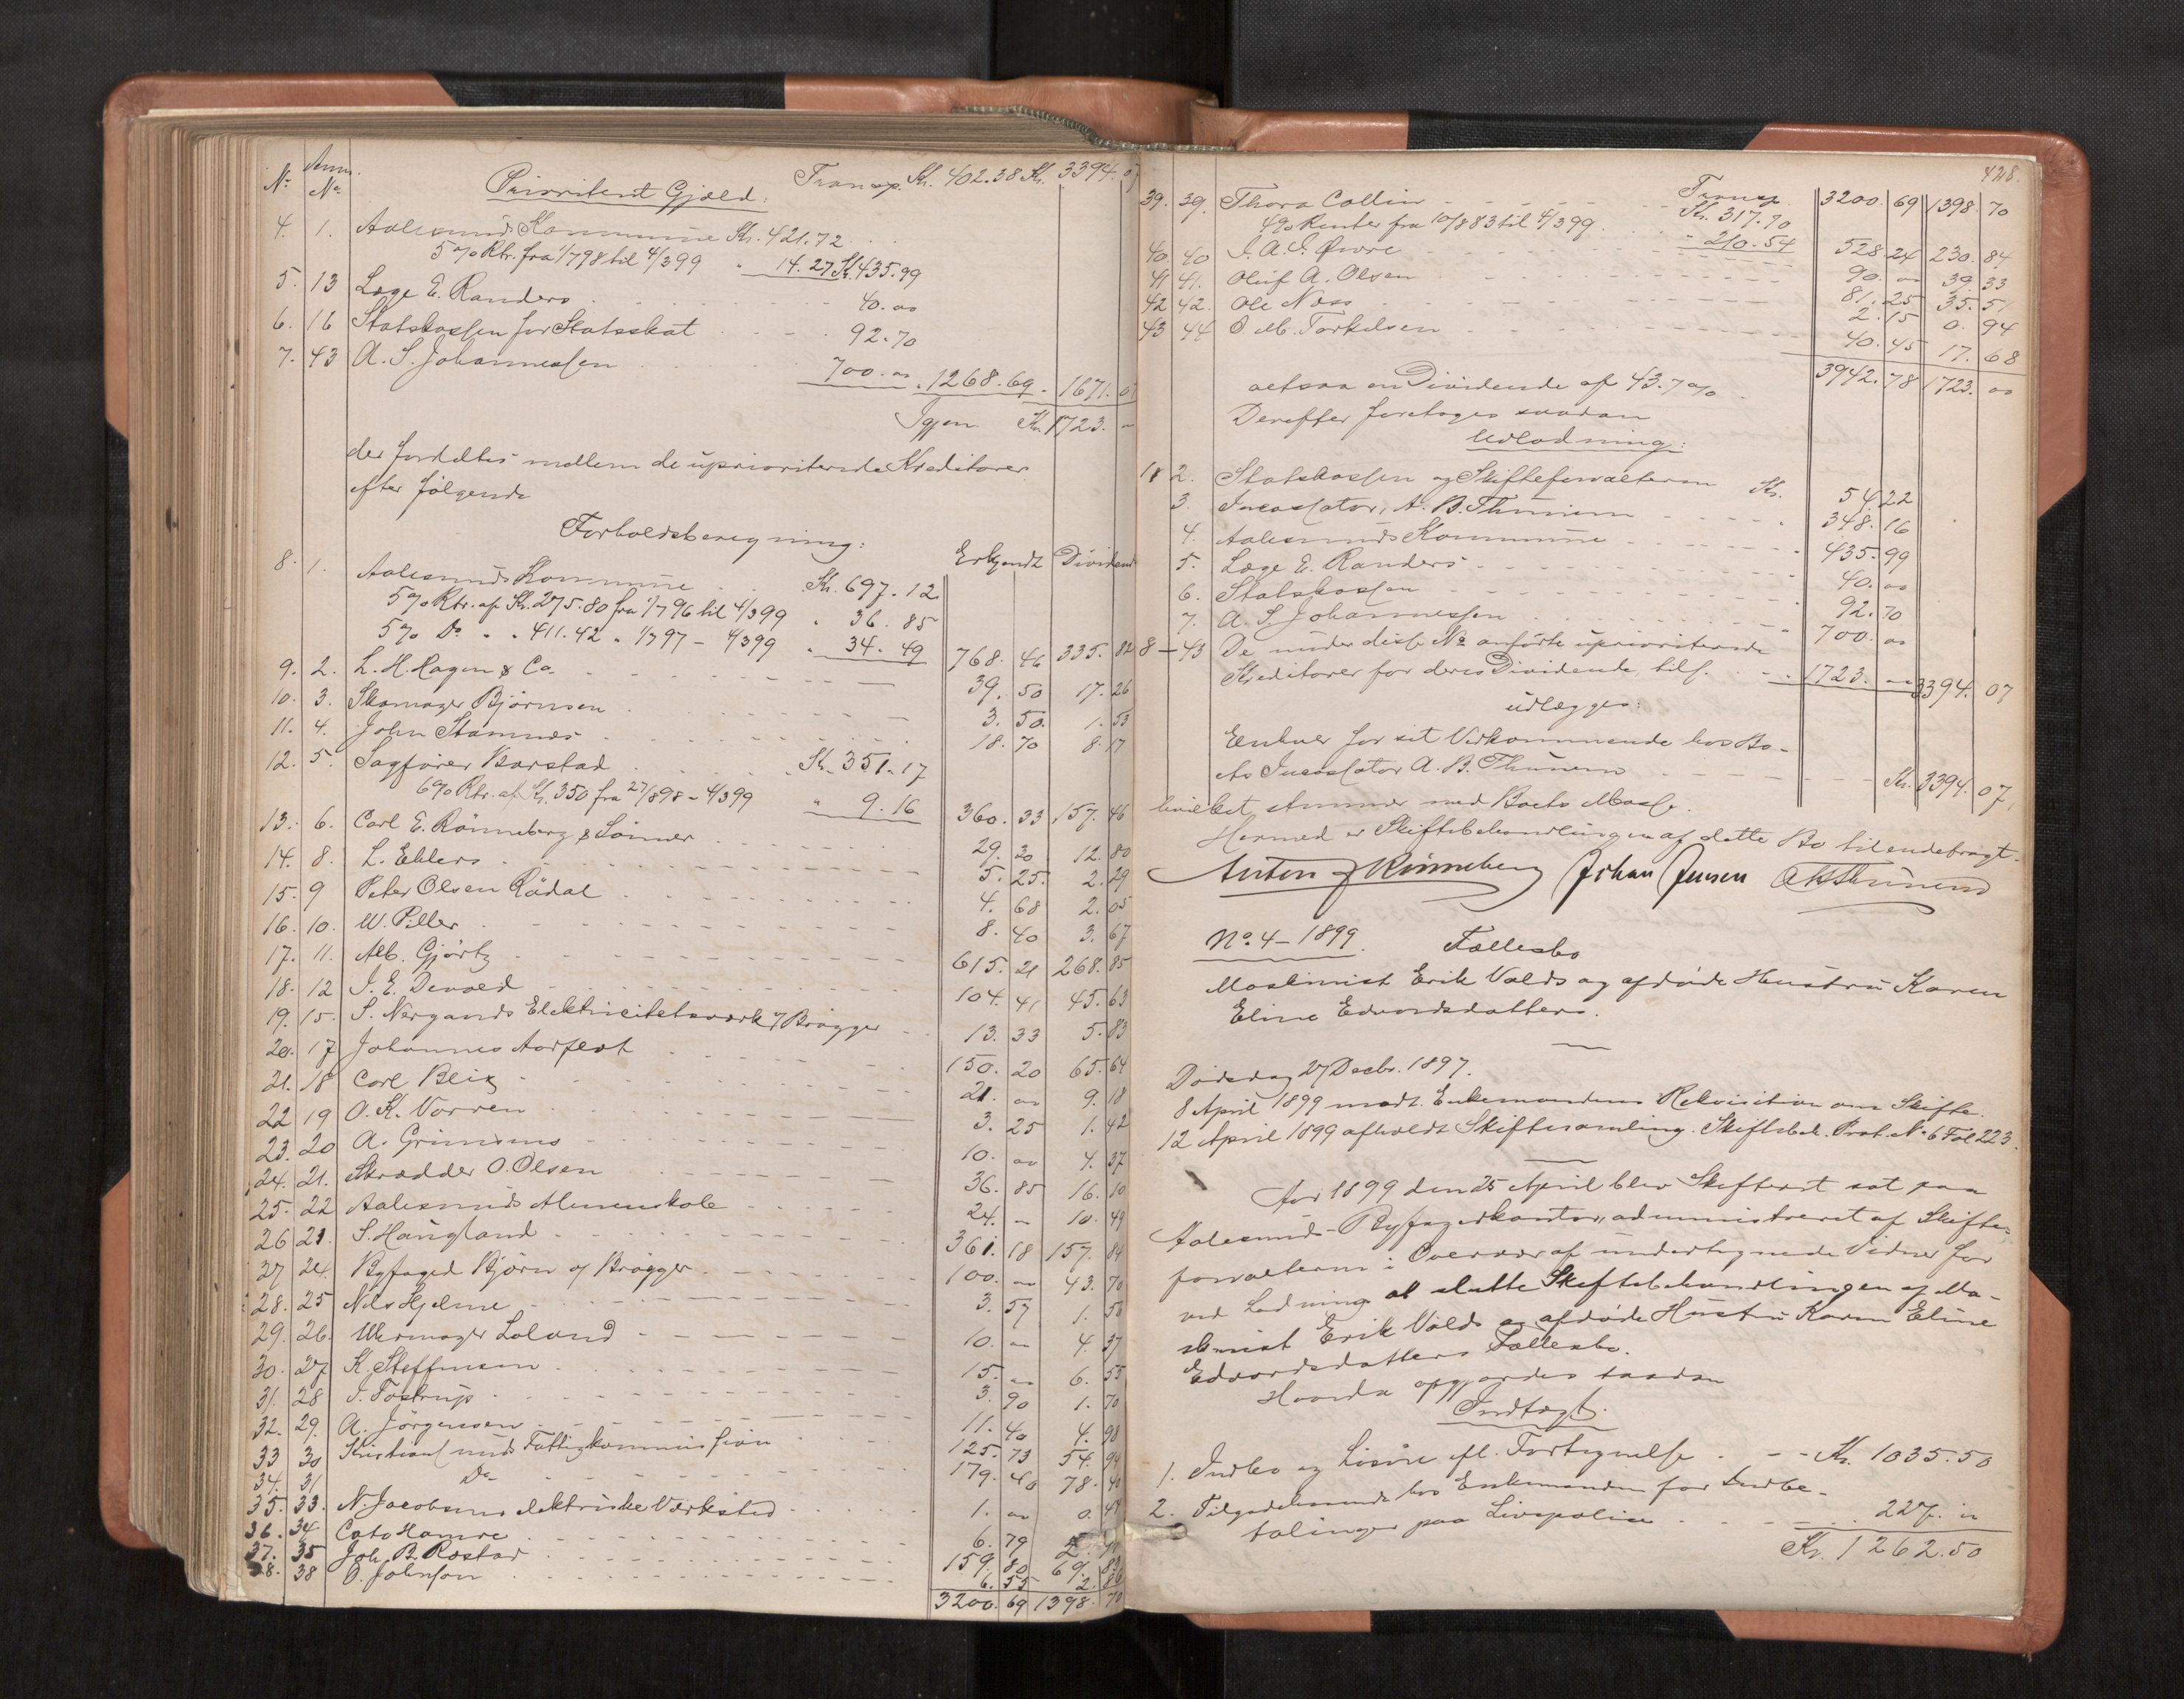 No. Anm. No. Prioriteret Gjæld: Transp. Kr. 402.38 Kr. 3394.07
4. 1. Aalesunds Kommune Kr. 421.72
5% Rtr. fra 1/7 98 til 4/3 99 " 14.27 Kr. 435.99
5. 13 Læge E. Randers 40.00
6. 16 Statskassen for Statsskat 92.70
7. 43 A. S. Johannessen 700.00 1268.69 - 1671.07
Igjen Kr. 1723. -
der fordeltes mellem de uprioriterede Kreditorer
efter følgende
Forholdsberegning:
Erkjendt Dividend
8. 1. Aalesunds Kommune Kr. 697.12
5% Rtr. af Kr. 275.80 fra 1/7 96 til 4/3 99 " 36.85
5% Do " " 411.42 " 1/7 97 - 4/3 99 " 34.49 768.46 335.82
9. 2. L. H. Hagen & Co. 39.50 17.26
10. 3. Skomager Bjørnsen 3.50 1.53
11. 4. John Stamnes 18.70 8.17
12. 5. Sagfører Barstad Kr. 351.17
6% Rtr. af Kr. 350 fra 27/8 98 - 4/3 99 " 9.16 360.33 157.46
13. 6. Carl E. Rönneberg & Sönner 29.30 12.80
14. 8. L. Ehlers 5.25 2.29
15. 9 Peter Olsen Rödal 4.68 2.05
16. 10. W. Piller 8.40 3.67
17. 11. Alb. Gjörtz 615.21 268.85
18. 12 I. E. Devold 104.41 45.63
19. 15. S. Nergaards Elektricitetsværk v/ Brøgger 13.33 5.83
20. 17 Johannes Aarfest 150.20 65.64
21. 18 Carl Blix 21.00 9.18
22 19 O. K. Vorren 3.25 1.42
23. 20 A. Grimsmo 10.00 4.37
24. 21. Skrædder O. Olsen 36.85 16.10
25. 22 Aalesunds Almenskole 24.- 10.49
26 21 S. Haugland 361.18 157.84
27 24. Byfoged Bjørn og Brøgger 100.00 43.70
28. 25 Nils Hjelme 3.57 1.56
29. 26. Uhrmager Loland 10.00 4.37
30. 27 K. Steffensen 15.00 6.55
31. 28 I. Tostrup 3.90 1.70
32. 29. A. Jörgensen 11.40 4.98
33 30 Kristiansunds Fattigkommission 125.73 54.94
34. 31 Do 179.40 78.40
35. 33. N. Jacobsens elektriske Værksted 1.00 0.44
36. 34 Cato Hamre 6.79
37. 35 Joh. B. Rostad 159.80 69.83
38. 38 O. Johnson 6.55 2.86
3200.69 1398.70
428.
Transp. 3200.69 1398.70
39. 39. Thora Collin Kr. 317.70
4% Renter fra 10/8 83 til 4/3 99 " 210.54 528.24 230.84
40. 40 I. A. I. Øwre 90.00 39.33
41 41. Oluf A. Olsen 81.25 35.51
42 42. Ole Næss 2.15 0.94
43 44 O. M. Torkelsen 40.45 17.68
3942.78 1723.00
altsaa en Dividende af 43.7%
Derefter foretoges saadan
Udlodning:
1 & 2. Statskassen og Skifteforvalteren Kr. 54.22
3. Incassator, A. B. Thunem 348.16
4. Aalesunds Kommune 435.99
5. Læge E. Randers 40.00
6. Statskassen 92.70
7. A. S. Johannessen 700.00
8 - 43 De under disse No anførte uprioriterede
Kreditorer for deres Dividende, tils. 1723.- 3394.07
udlægges:
Enhver for sit Vedkommende hos Bo-
ets Incassator A. B. Thunem Kr. 3394.07
hvilket stemmer med Boets Masse.
Hermed er Skiftebehandlingen af dette Bo tilendebragt.
Anton Rönneberg Johan Jensen A B Thunem
No. 4 - 1899. Fællesbo
Maskinist Erik Valds og afdøde Hustru Karen
Eline Edvardsdatters.
Dødsdag 27 Decbr. 1897.
8 April 1899 modt. Enkemandens Rekvisition om Skifte.
12 April 1899 afholdt Skiftesamling. Skiftebeh. Prot. No 6 Fol 223.
Aar 1899 den 25 April blev Skifteret sat paa
Aalesunds Byfogedkontor, administreret af Skifte-
forvalteren i Overvær af undertegnede Vidner for
ved Lodning at slutte Skiftebehandlingen af Ma-
skinist Erik Valds og afdøde Hustru Karen Eline
Edvardsdatters Fællesbo.
Hvorda opgjordes saadan
Indtægt.
1. Indbo og Løsøre efl. Fortegnelse Kr. 1035.50
2. Tilgodehavende hos Enkemanden for Indbe-
talinger paa Livspolice 227.00
Kr. 1262.50